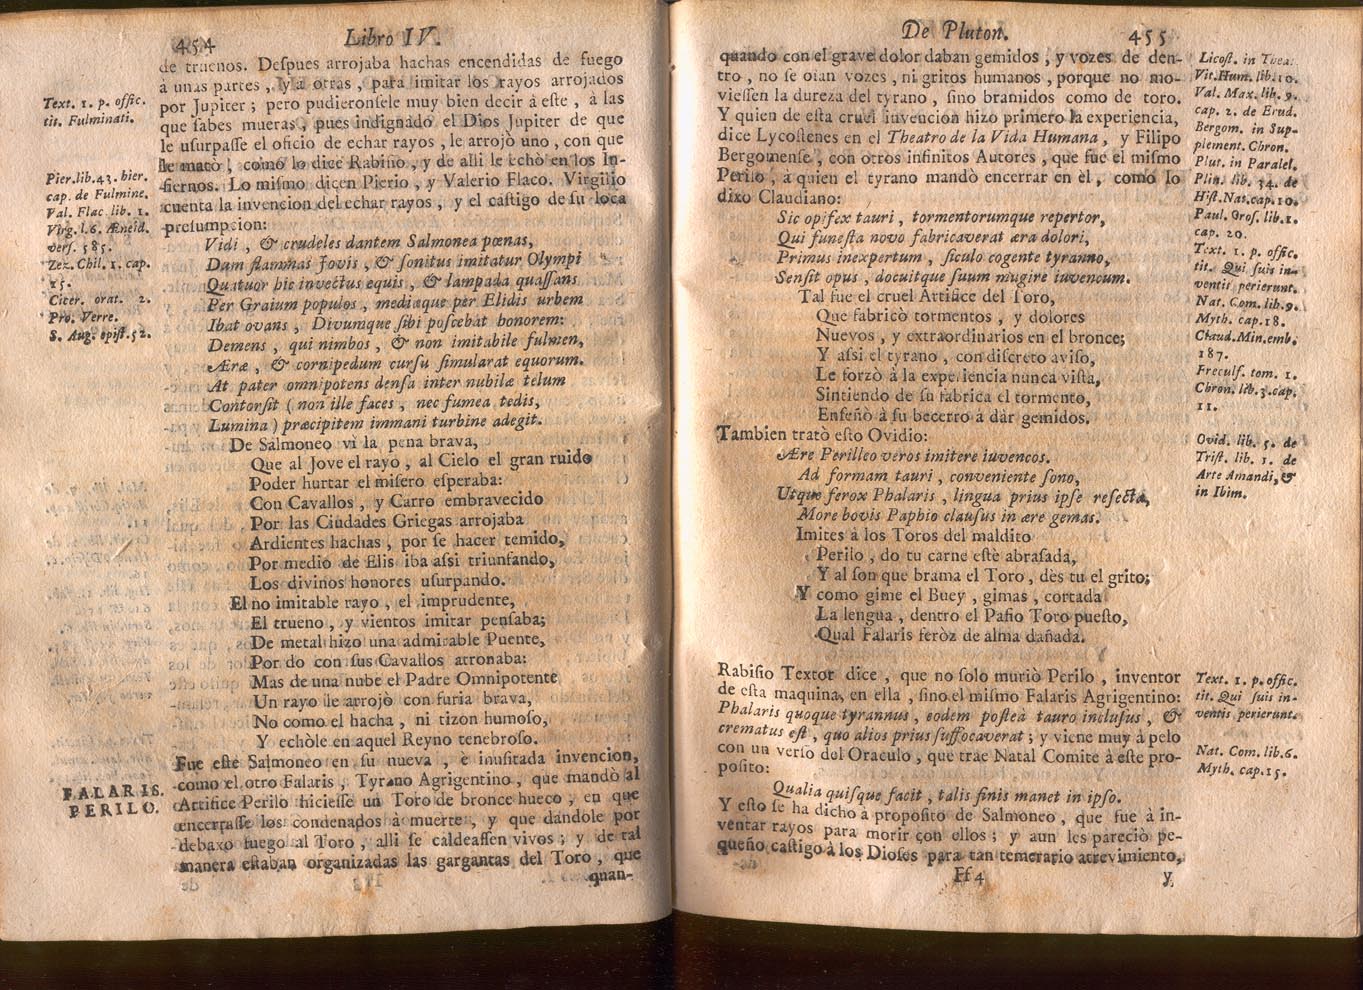 454
Libro IV.
de truenos. Despues arrojaba hachas encendidas de fuego
à unas partes, y à otras, para imitar los rayos arrojados
por Jupiter; pero pudieronsele muy bien decir à este, à las
que sabes mueras, pues indignado el Dios Jupiter de que
le usurpasse el oficio de echar rayos, le arrojò uno, con que
le matò, como lo dice Rabisio, y de alli le echò en los In-
fiernos. Lo mismo dicen Pierio, y Valerio Flaco. Virgilio
cuenta la invencion del echar rayos, y el castigo de su loca
presumpcion:
Vidi, & crudeles dantem Salmonea pœnas,
Dum flammas Jovis, & sonitus imitatur Olympi
Quatuor hic invectus equis, & lampada quassans
Per Graium populos, mediæque per Elidis urbem
Ibat ovans, Divumque sibi poscebat honorem:
Demens, qui nimbos, & non imitabile fulmen,
Æræ, & cornipedum cursu simularat equorum.
At pater omnipotens densa inter nubila telum
Contorsit (non ille faces, nec fumea tedis,
Lumina) præcipitem immani turbine adegit.
De Salmoneo vi la pena brava,
Que al Jove el rayo, al Cielo el gran ruido
Poder hurtar el misero esperaba:
Con Cavallos, y Carro embravecido
Por las Ciudades Griegas arrojaba
Ardientes hachas, por se hacer temido,
Por medio de Elis iba assi triunfando,
Los divinos honores usurpando.
El no imitable rayo, el imprudente,
El trueno, y vientos imitar pensaba;
De metal hizo una admirable Puente,
Por do con sus Cavallos atronaba:
Mas de una nube el Padre Omnipotente
Un rayo lle arrojò con furia brava,
No como el hacha, ni tizon humoso,
Y echòle en aquel Reyno tenebroso.
Fue este Salmoneo en su nueva, è inusitada invencion,
como el otro Falaris, Tyrano Agrigentino, que mandò al
Artifice Perilo hiciesse un Toro de bronce hueco, en que
encerrasse los condenados à muerte, y que dandole por
debaxo fuego al Toro, alli se caldeassen vivos; y de tal
manera estaban organizadas las gargantas del Toro, que
quan-
Text. 1. p. offic.
tit. Fulminati.
Pier. lib. 43. hier.
cap. de Fulmine.
Val. Flac. lib. 1.
Virg. l. 6. Æneid.
vers. 585.
Zez. Chil. 1. cap.
15.
Citer. orat. 2.
Pro. Verre.
S. Aug. epist. 52.
FALARIS.
PERILO.
De Pluton.
455
quando con el grave dolor daban gemidos, y vozes de den-
tro, no se oian vozes, ni gritos humanos, porque no mo-
viessen la dureza del tyrano, sino bramidos como de toro.
Y quien de esta cruel invencion hizo primero la experiencia,
dice Lycostenes en el Theatro de la Vida Humana, y Filipo
Bergomense, con otros infinitos Autores, que fue el mismo
Perilo, à quien el tyrano mandò encerrar en èl, como lo
dixo Claudiano:
Sic opifex tauri, tormentorumque repertor,
Qui funesta novo fabricaverat æra dolori,
Primus inexpertum, siculo cogente tyranno,
Sensit opus, docuitque suum mugire iuvencum.
Tal fue el cruel Artifice del Toro,
Que fabricò tormentos, y dolores
Nuevos, y extraordinarios en el bronce;
Y assi el tyrano, con discreto aviso,
Le forzò à la experiencia nunca vista,
Sintiendo de su fabrica el tormento,
Enseñò à su becerro à dàr gemidos.
Tambien tratò esto Ovidio:
Ære Perilleo veros imitere iuvencos.
Ad formam tauri, conveniente sono,
Utque ferox Phalaris, lingua prius ipse resecta,
More bovis Paphio clausus in ære gemas.
Imites à los Toros del maldito
Perilo, do tu carne estè abrasada,
Y al son que brama el Toro, dès tu el grito;
Y como gime el Buey, gimas, cortada
La lengua, dentro el Pafio Toro puesto,
Qual Falaris feròz de alma dañada.
Rabisio Textor dice, que no solo muriò Perilo, inventor
de esta maquina, en ella, sino el mismo Falaris Agrigentino:
Phalaris quoque tyrannus, eodem posteà tauro inclusus, &
crematus est, quo alios prius suffocaverat; y viene muy à pelo
con un verso del Oraculo, que trae Natal Comite à este pro-
posito:
Qualia quisque facit, talis finis manet in ipso.
Y esto se ha dicho à proposito de Salmoneo, que fue à in-
ventar rayos para morir con ellos; y aun les pareciò pe-
queño castigo à los Dioses para tan temerario atrevimiento,
Ff 4
y
Licost. in Thea.
Vit. Hum. lib. 10.
Val. Max. lib. 9.
cap. 2. de Erud.
Bergom. in Sup-
plement. Chron.
Plut. in Paralel.
Plin. lib. 34. de
Hist. Nat. cap. 10.
Paul. Oros. lib. 1.
cap. 20.
Text. 1. p. offic.
tit. Qui suis in-
ventis perierunt.
Nat. Com. lib. 9.
Myth. cap. 18.
Chaud. Min. emb.
187.
Freculf. tom. 1.
Chron. lib. 3. cap.
11.
Ovid. lib. 5. de
Trist. lib. 1. de
Arte Amandi, &
in Ibim.
Text. 1. p. offic.
tit. Qui suis in-
ventis perierunt.
Nat. Com. lib. 6.
Myth. cap. 15.